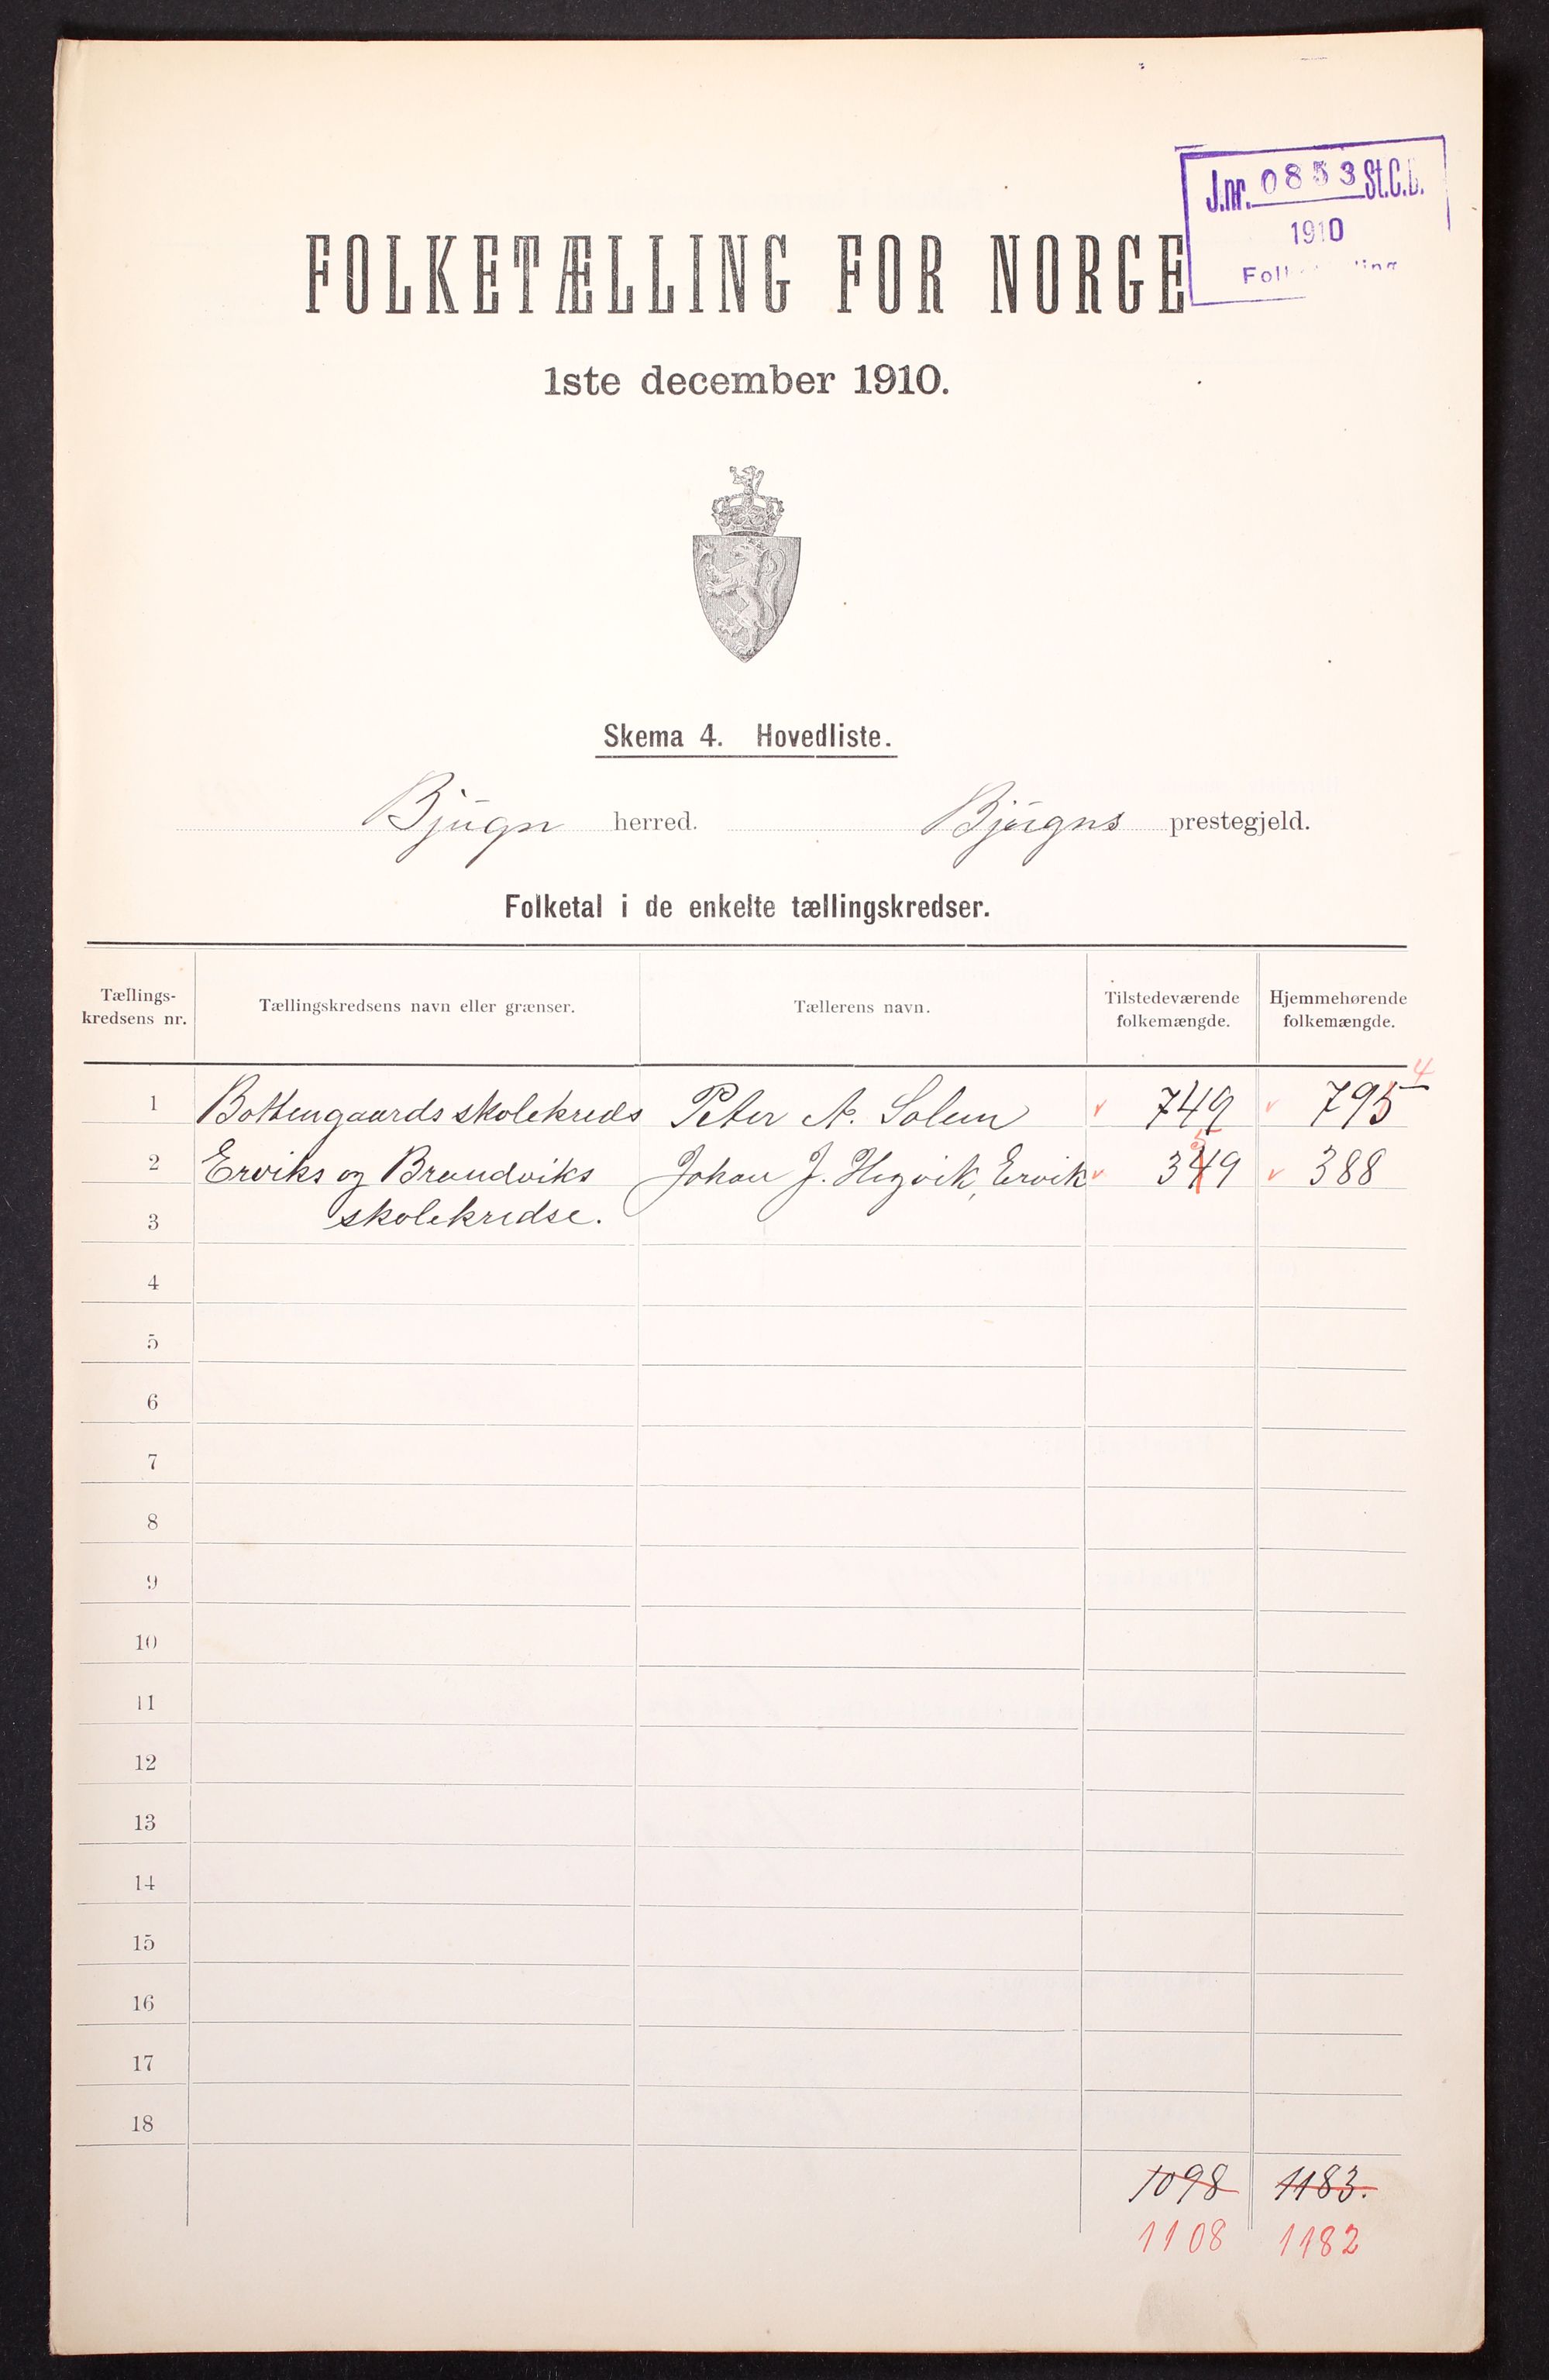 J.nr. 0853 St.C.B.
1910
FOLKETÆLLING FOR NORGE
1ste december 1910.
Skema 4. Hovedliste.
Bjugn herred. Bjugns prestegjeld.
Folketal i de enkelte tællingskredser.
Tællings-kredsens nr. Tællingskredsens navn eller grænser. Tællerens navn. Tilstedeværende folkemængde. Hjemmehørende folkemængde.
4
1 Bottengaards skolekreds Peter A. Solem 749 795
5
2 Erviks og Brandviks Johan J. Hegvik, Ervik 349 388
3 skolekredse.
4
5
6
7
8
9
10
11
12
13
14
15
16
17
18
1098 1183.
1108 1182